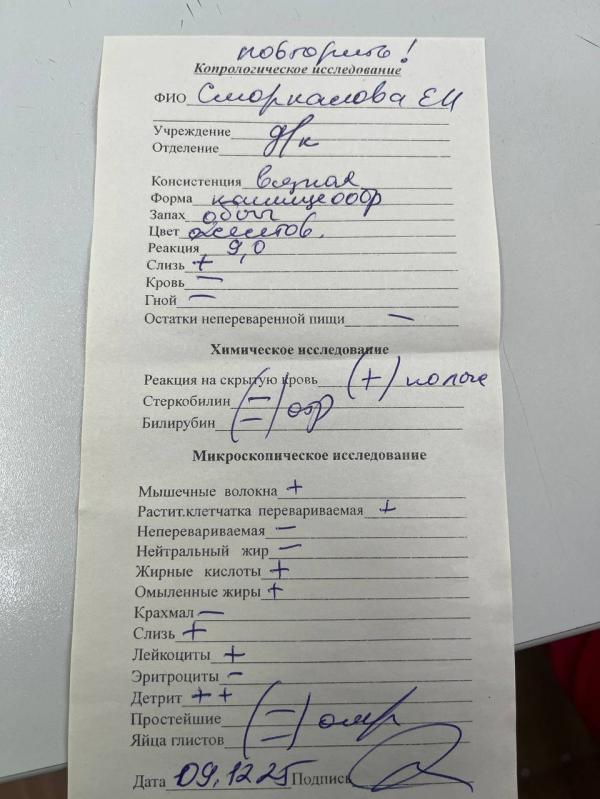 повторить!
Копрологическое исследование
ФИО Сморкалова ЕИ
Учреждение
Отделение д/к
Консистенция вязкая
Форма кашицеообр
Запах обычн
Цвет
Реакция 9,0
Слизь +
Кровь —
Гной —
Остатки непереваренной пищи —
Химическое исследование
Реакция на скрытую кровь (+) полож
Стеркобилин (—)
Билирубин (—) отр
Микроскопическое исследование
Мышечные волокна +
Растит.клетчатка перевариваемая +
Неперевариваемая —
Нейтральный жир —
Жирные кислоты +
Омыленные жиры +
Крахмал —
Слизь +
Лейкоциты +
Эритроциты —
Детрит ++
Простейшие (—) отр
Яйца глистов (—)
Дата 09.12.25 Подпись